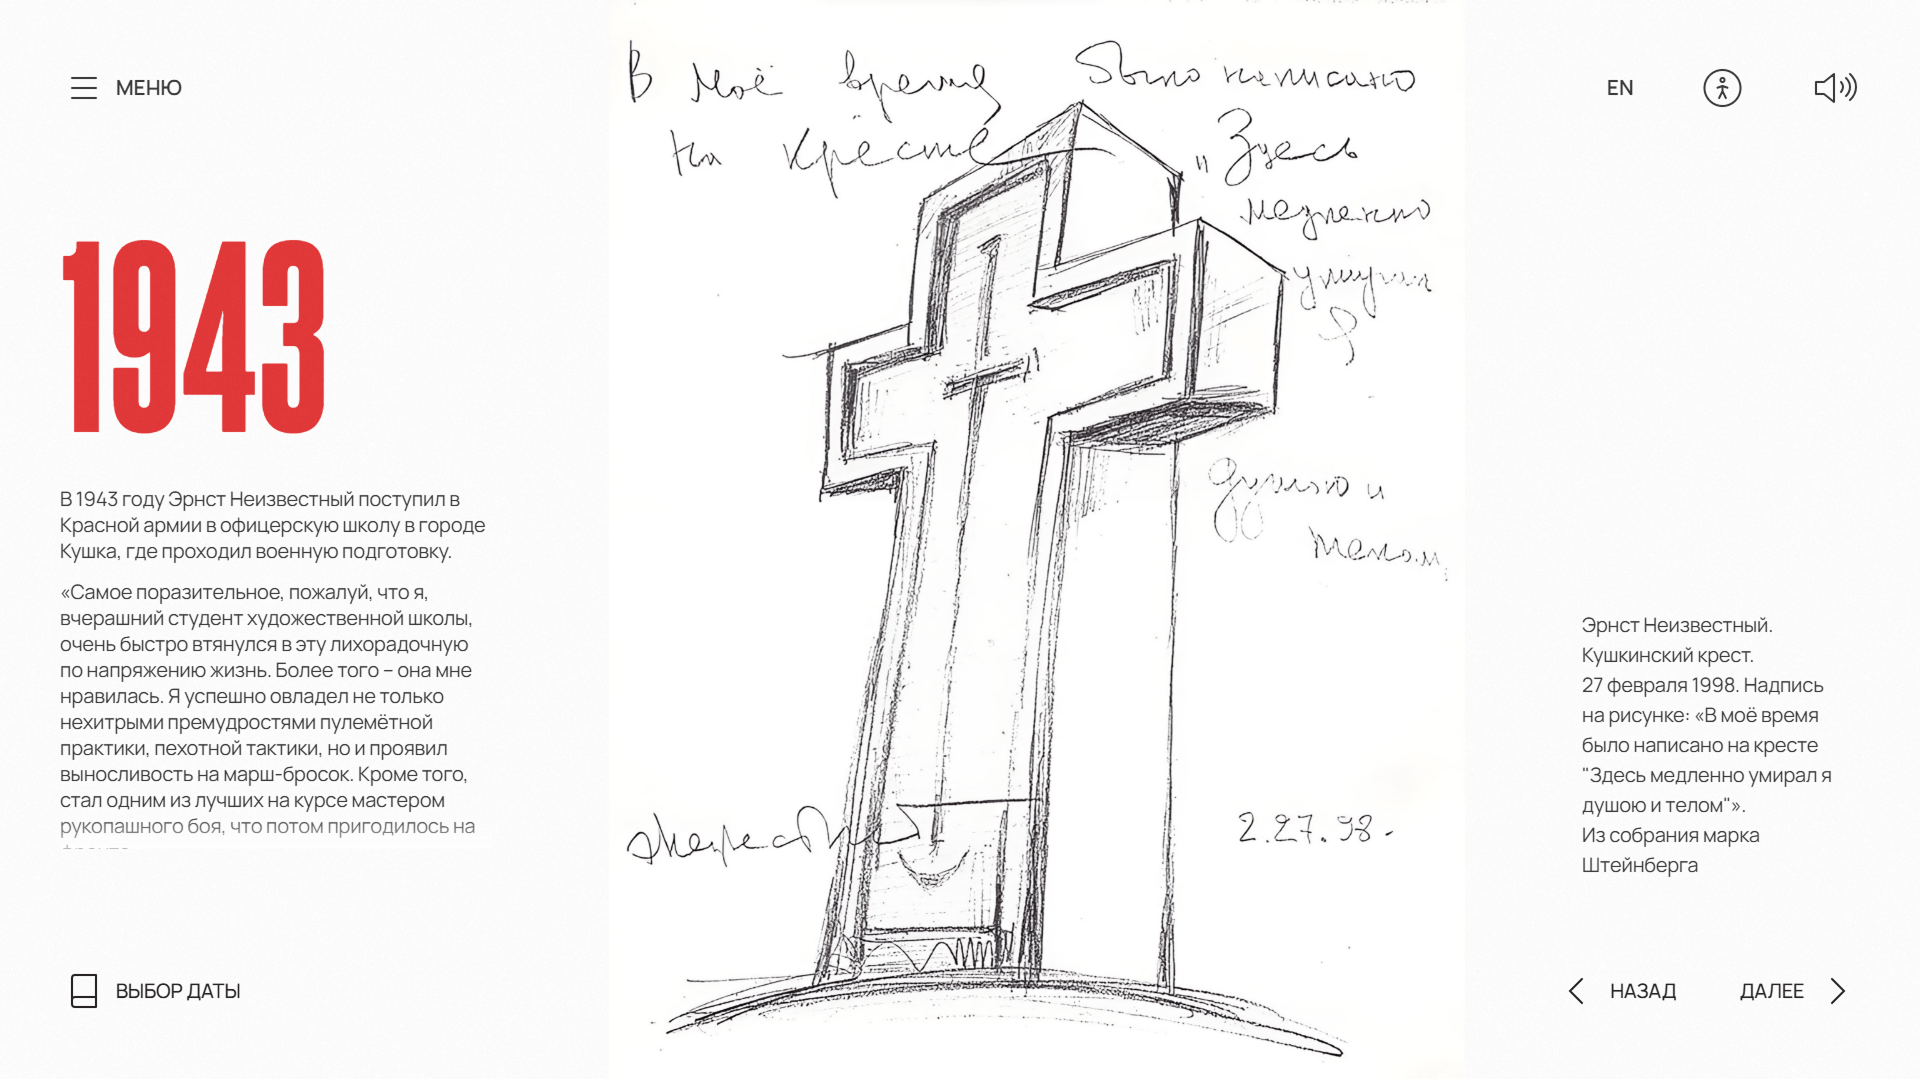 МЕНЮ
EN
1943
В 1943 году Эрнст Неизвестный поступил в
Красной армии в офицерскую школу в городе
Кушка, где проходил военную подготовку.
«Самое поразительное, пожалуй, что я,
вчерашний студент художественной школы,
очень быстро втянулся в эту лихорадочную
по напряжению жизнь. Более того – она мне
нравилась. Я успешно овладел не только
нехитрыми премудростями пулемётной
практики, пехотной тактики, но и проявил
выносливость на марш-бросок. Кроме того,
стал одним из лучших на курсе мастером
рукопашного боя, что потом пригодилось на
В моё время было написано
на кресте "Здесь
медленно
умирал
я
душою и
телом
2.27.98.
Эрнст Неизвестный.
Кушкинский крест.
27 февраля 1998. Надпись
на рисунке: «В моё время
было написано на кресте
"Здесь медленно умирал я
душою и телом"».
Из собрания марка
Штейнберга
ВЫБОР ДАТЫ
НАЗАД
ДАЛЕЕ